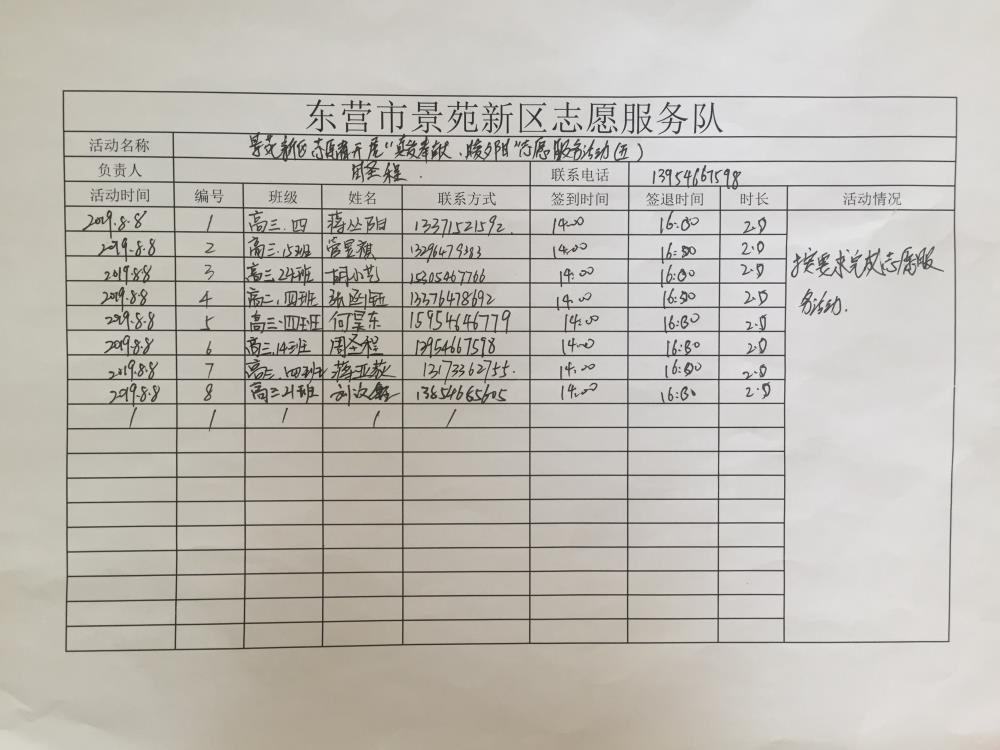 东营市景苑新区志愿服务队
活动名称 景苑新区志愿者开展“真爱奉献、暖夕阳”志愿服务活动(五)
负责人 周圣程. 联系电话 13954667598
活动时间 编号 班级 姓名 联系方式 签到时间 签退时间 时长 活动情况
2019.8.8 1 高三.四 蒋丛阳 13371521592. 14:00 16:00 2.0
2019.8.8 2 高三.15班 管昱祺 14:00 16:00 2.0
2019.8.8 3 高三.24班 胡小艺 15205467766 14:00 16:00 2.0
2019.8.8 4 高二.四班 13376478692 14:00 16:00 2.0
2019.8.8 5 高三.四班 何昊东 15954646779 14:00 16:00 2.0
2019.8.8 6 高三.14班 周圣程 13954667598 14:00 16:00 2.0
2019.8.8 7 高三.四班 蒋亚荻 13173362755. 14:00 16:00 2.0
2019.8.8 8 高三21班 刘汶鑫 13854685605 14:00 16:00 2.0
/ / / / /
按要求完成志愿服
务活动.